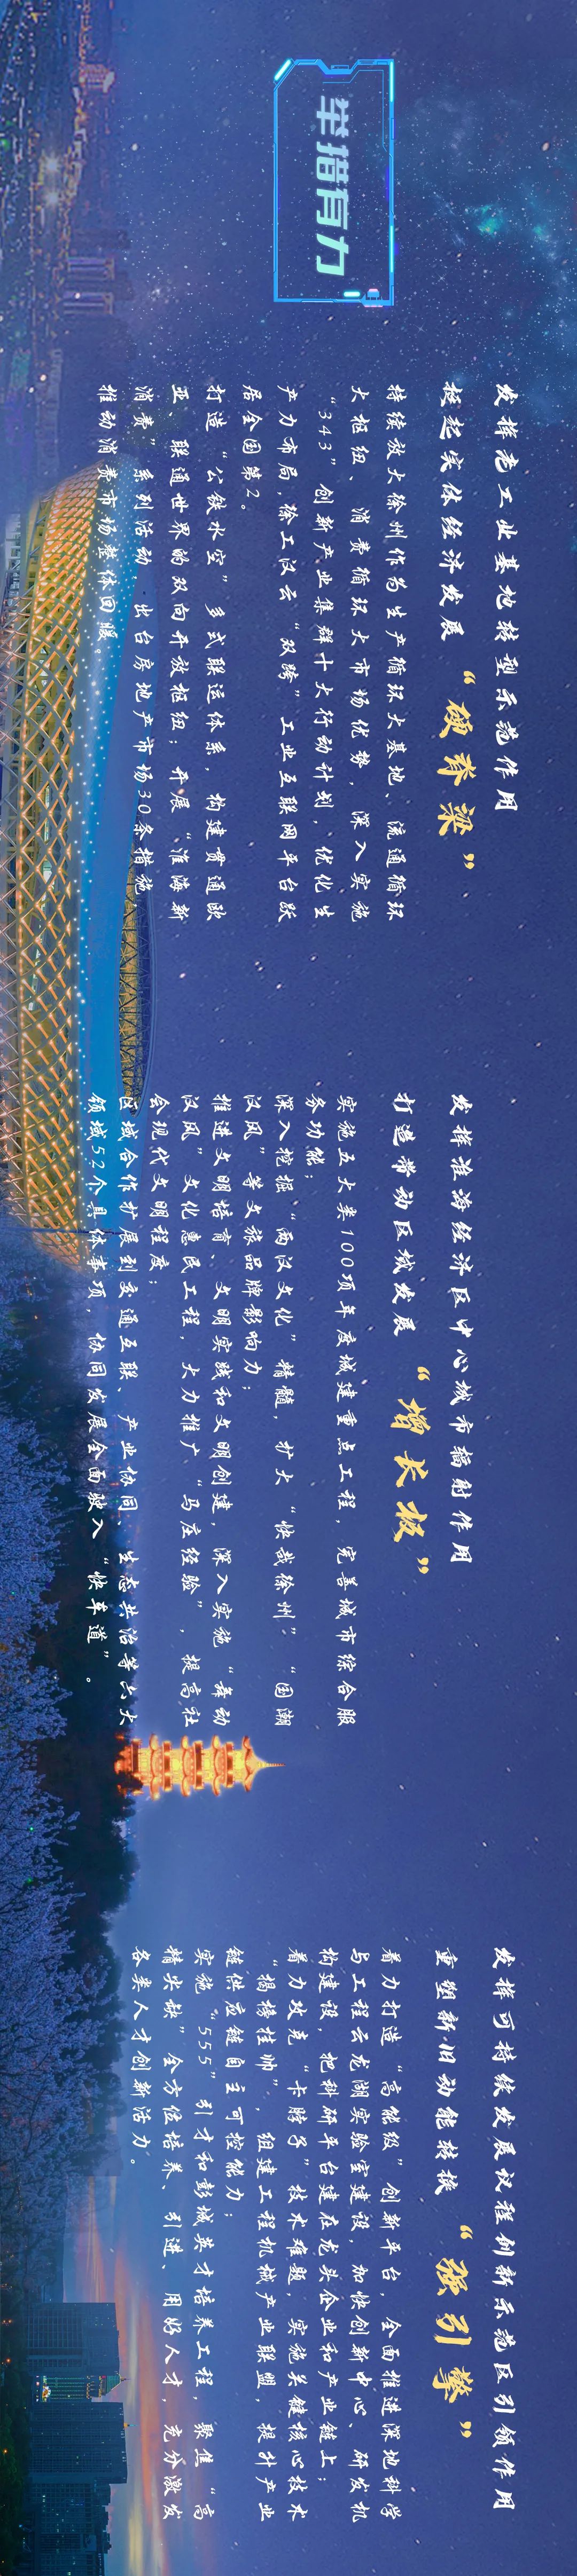 举措有力
发挥老工业基地转型示范作用
挺起实体经济发展“硬脊梁”
持续放大徐州作为生产循环大基地、流通循环
大枢纽、消费循环大市场优势，深入实施
“343”创新产业集群十大行动计划，优化生
产力布局，徐工汉云“双跨”工业互联网平台跃
居全国第2。
打造“公铁水空”多式联运体系，构建贯通欧
亚、联通世界的双向开放枢纽；开展“淮海新
消费”系列活动，出台房地产市场30条措施
推动消费市场整体回暖。
发挥淮海经济区中心城市辐射作用
打造带动区域发展“增长极”
实施五大类100项年度城建重点工程，完善城市综合服
务功能；
深入挖掘“两汉文化”精髓，扩大“快哉徐州”“国潮
汉风”等文旅品牌影响力；
推进文明培育、文明实践和文明创建，深入实施“舞动
汉风”文化惠民工程，大力推广“马庄经验”，提高社
会现代文明程度；
区域合作扩展到交通互联、产业协同、生态共治等六大
领域52个具体事项，协同发展全面驶入“快车道”。
发挥可持续发展议程创新示范区引领作用
重塑新旧动能转换“强引擎”
着力打造“高能级”创新平台，全面推进深地科学
与工程云龙湖实验室建设，加快创新中心、研发机
构建设，把科研平台建在龙头企业和产业链上；
着力攻克“卡脖子”技术难题，实施关键核心技术
“揭榜挂帅”，组建工程机械产业联盟，提升产业
链供应链自主可控能力；
实施“555”引才和彭城英才培养工程，聚焦“高
精尖缺”全方位培养、引进、用好人才，充分激发
各类人才创新活力。